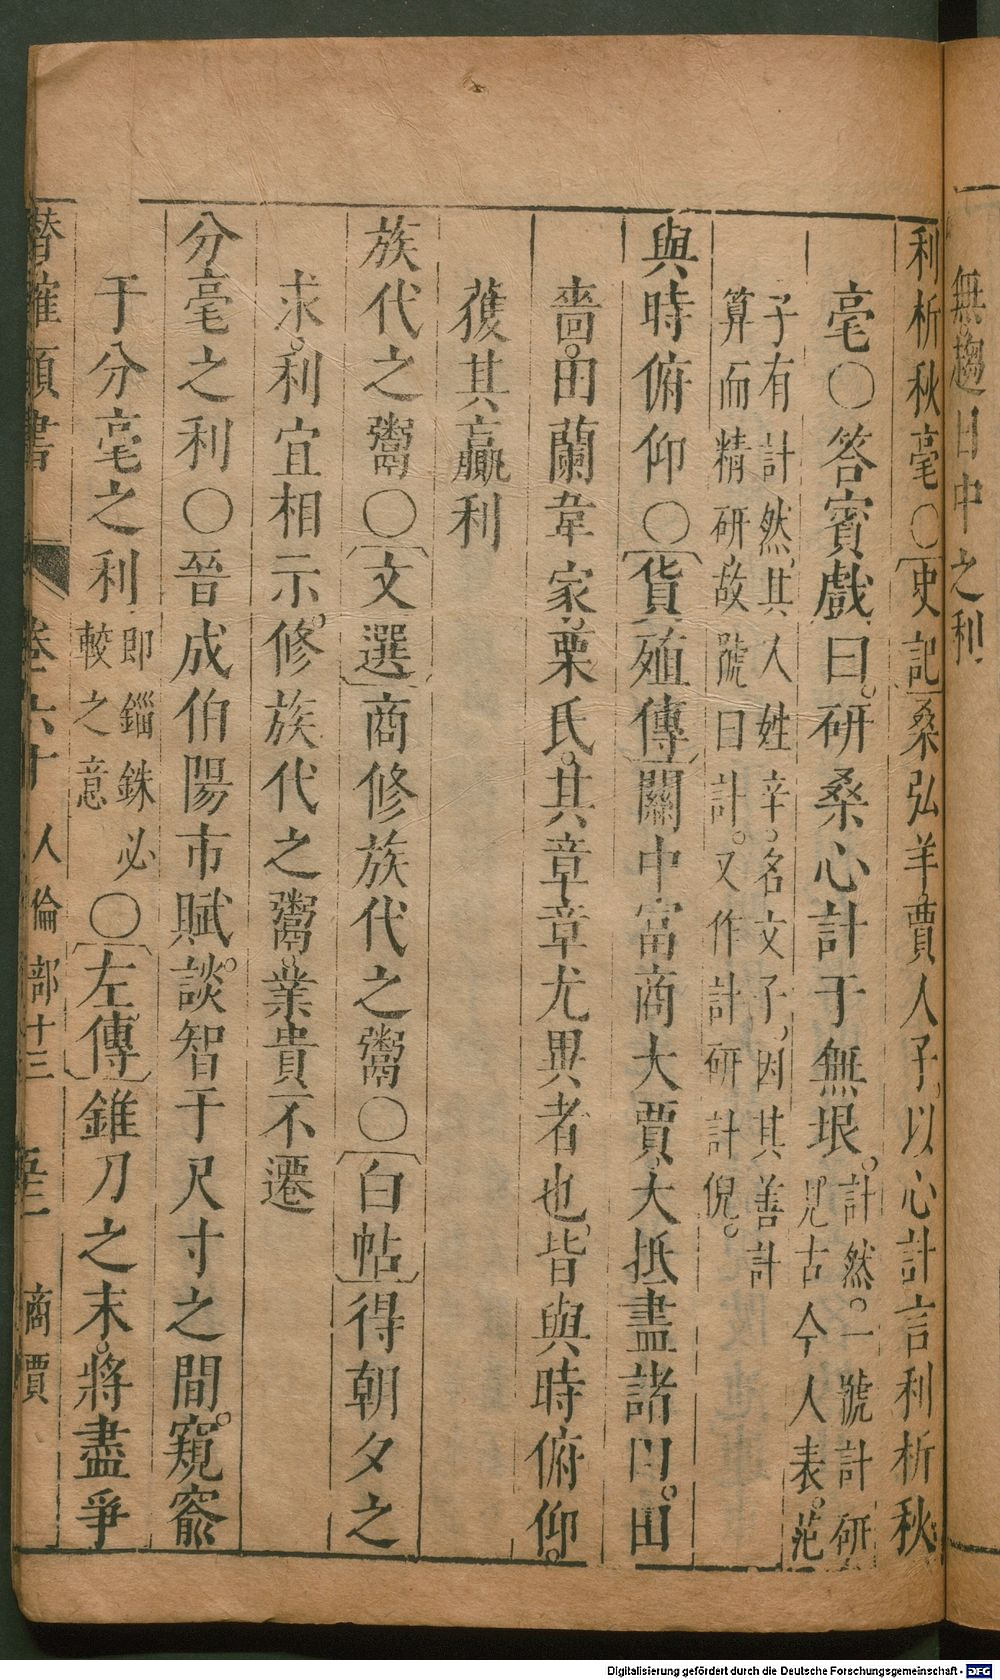 無趨日中之利
利析秋毫○〔史記〕桑弘羊賈人子以心計言利析秋
毫○答賓戲曰。研桑心計于無垠。計然。一號計研
見古今人表。范
子有計然其人姓辛。名文子因其善計
算而精研故號曰計。又作計研計倪。
與時俯仰○〔貨殖傳〕關中富商大賈大抵盡諸田。田
嗇。田蘭韋家栗氏。其章章尤異者也皆與時俯仰。
獲其贏利
族代之鬻○〔文選〕商修族代之鬻○〔白帖〕得朝夕之
求利宜相示。修族代之鬻。業貴不遷
分毫之利○晉成伯陽市賦。談智于尺寸之間。窺窬
于分毫之利即錙銖必
較之意○〔左傳〕錐刀之末。將盡爭
潛確類書 卷六十 人倫部十三 商賈
Digitalisierung gefördert durch die Deutsche Forschungsgemeinschaft - DFG